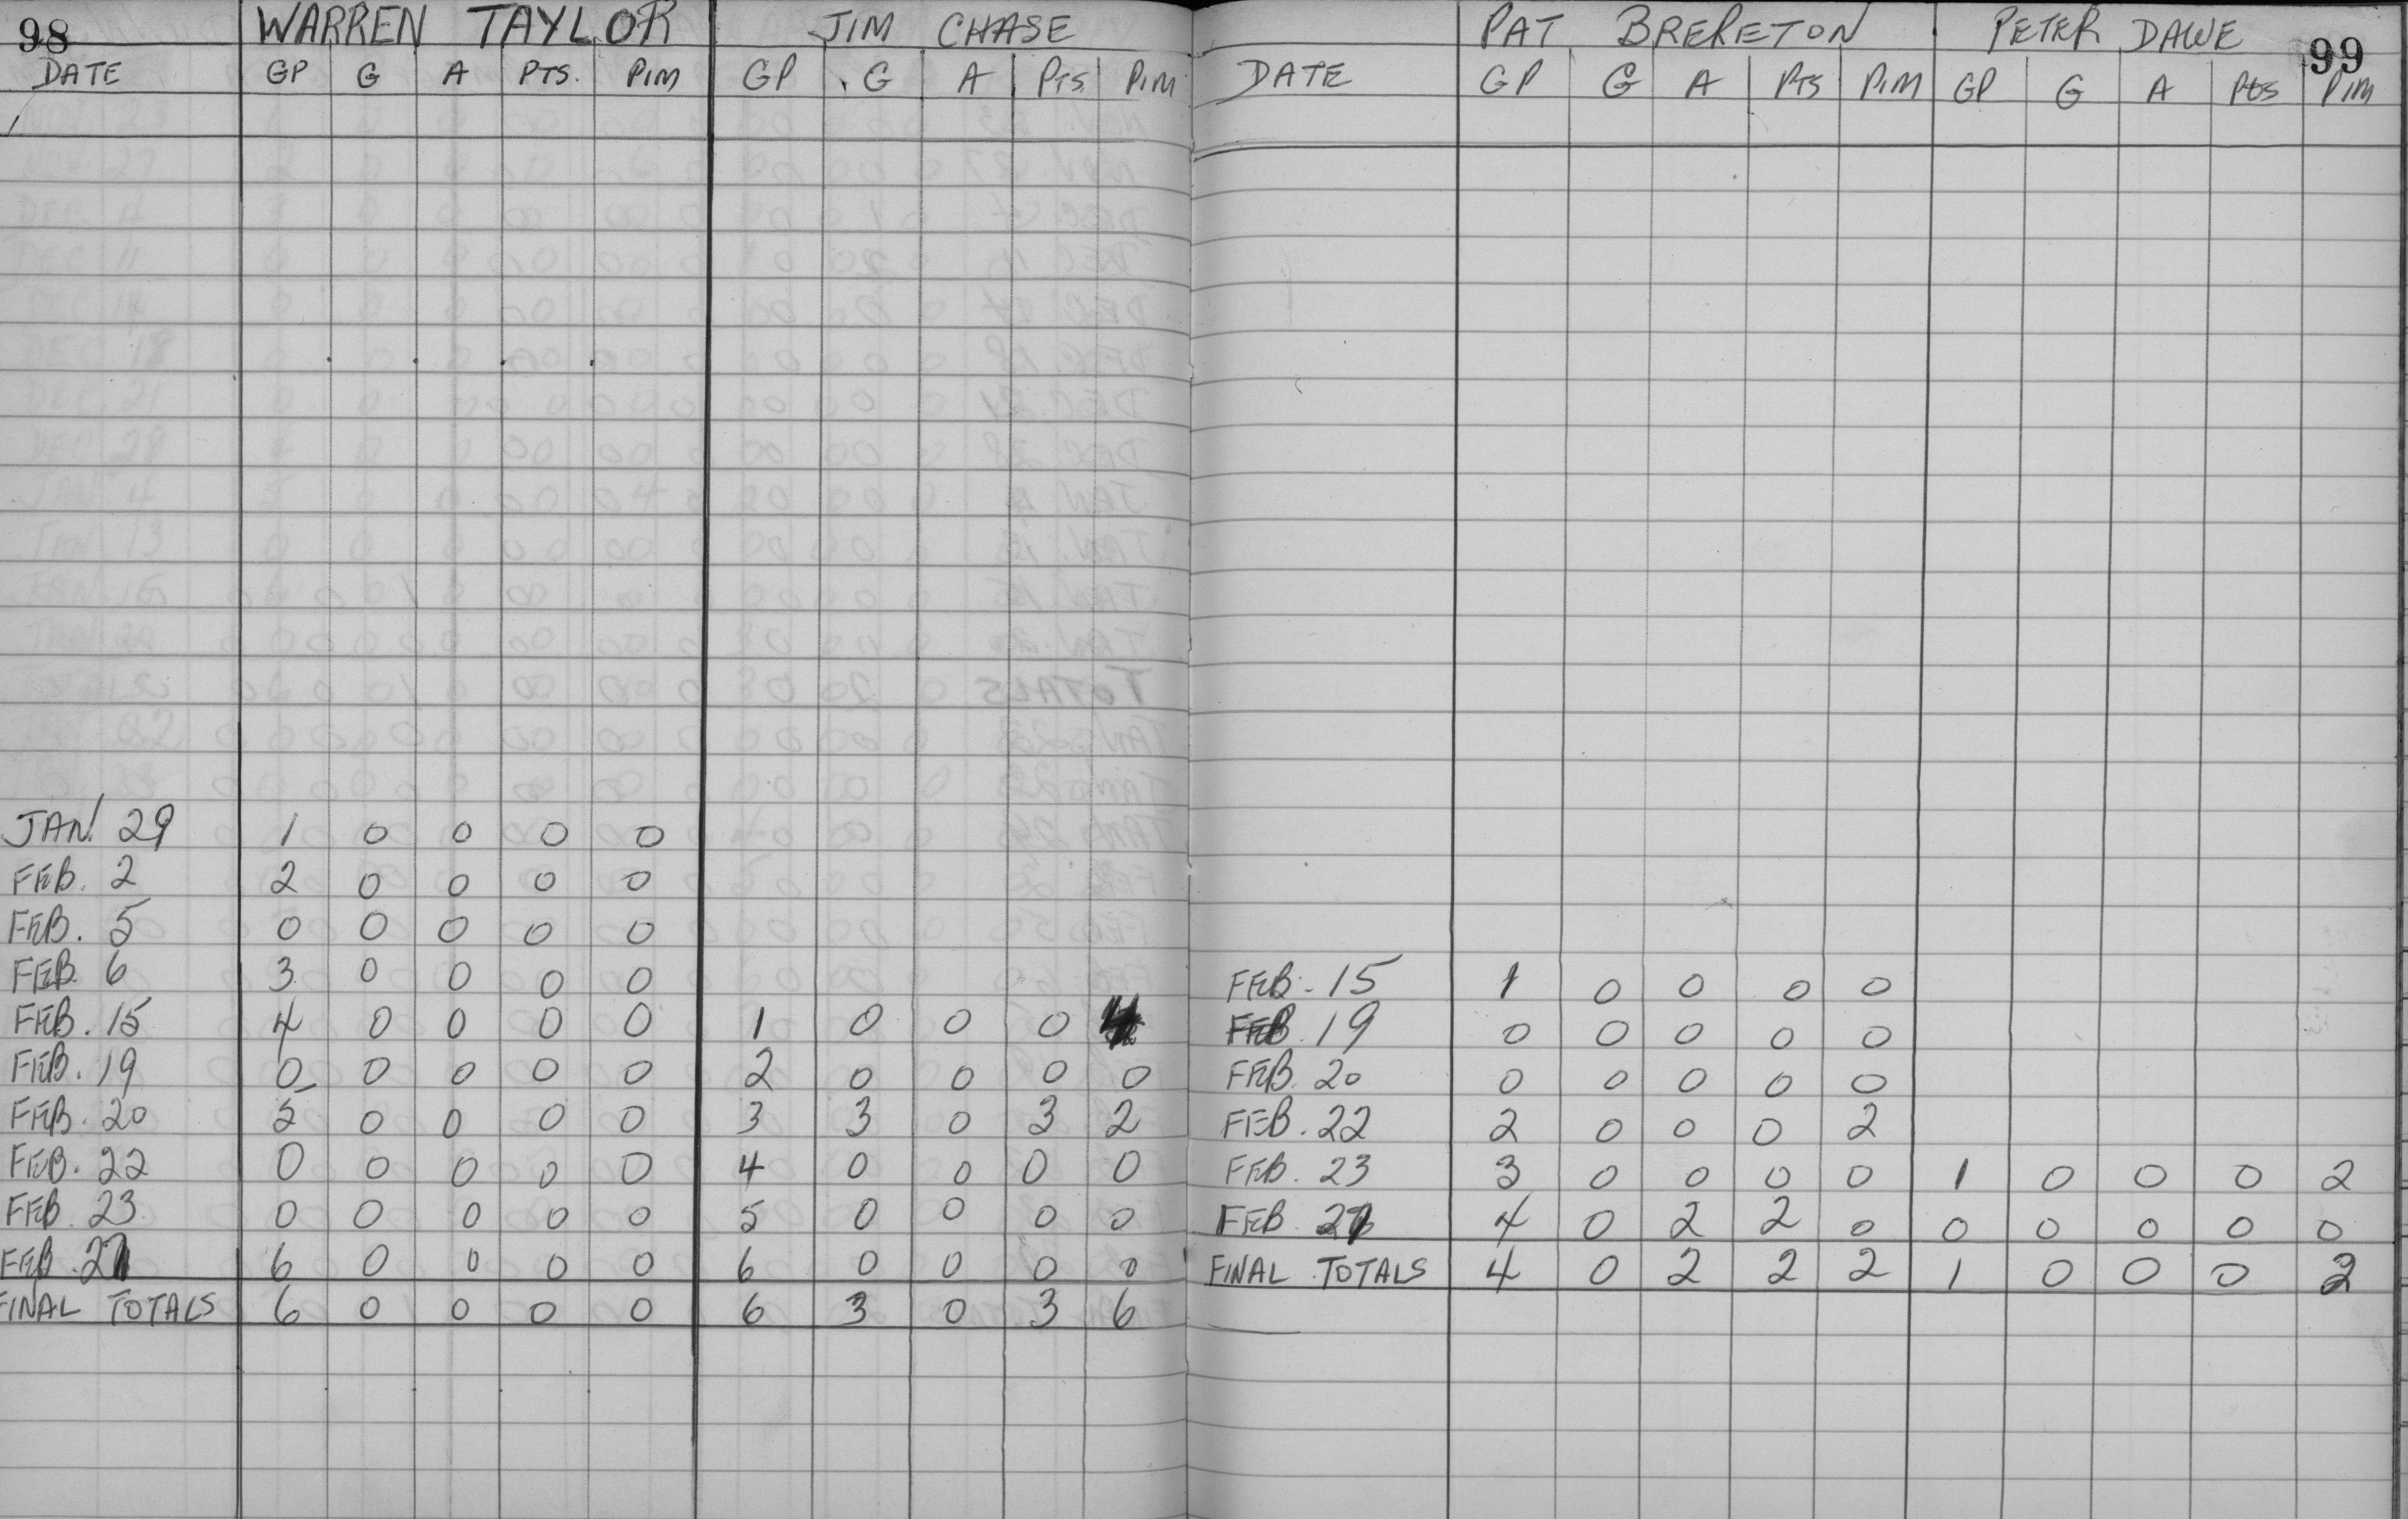 98 WARREN TAYLOR JIM CHASE
DATE GP G A PTS. PIM GP G A PTS PIM
JAN. 29 1 0 0 0 0
FEB. 2 2 0 0 0 0
FEB. 5 0 0 0 0 0
FEB. 6 3 0 0 0 0
FEB. 15 4 0 0 0 0 1 0 0 0 4
FEB. 19 0 0 0 0 0 2 0 0 0 0
FEB. 20 5 0 0 0 0 3 3 0 3 2
FEB. 22 0 0 0 0 0 4 0 0 0 0
FEB. 23 0 0 0 0 0 5 0 0 0 0
FEB. 27 6 0 0 0 0 6 0 0 0 0
FINAL TOTALS 6 0 0 0 0 6 3 0 3 6
PAT BRERETON PETER DAWE 99
DATE GP G A PTS PIM GP G A Pts PIM
FEB. 15 1 0 0 0 0
FEB. 19 0 0 0 0 0
FEB. 20 0 0 0 0 0
FEB. 22 2 0 0 0 2
FEB. 23 3 0 0 0 0 1 0 0 0 2
FEB. 27 4 0 2 2 0 0 0 0 0 0
FINAL TOTALS 4 0 2 2 2 1 0 0 0 2